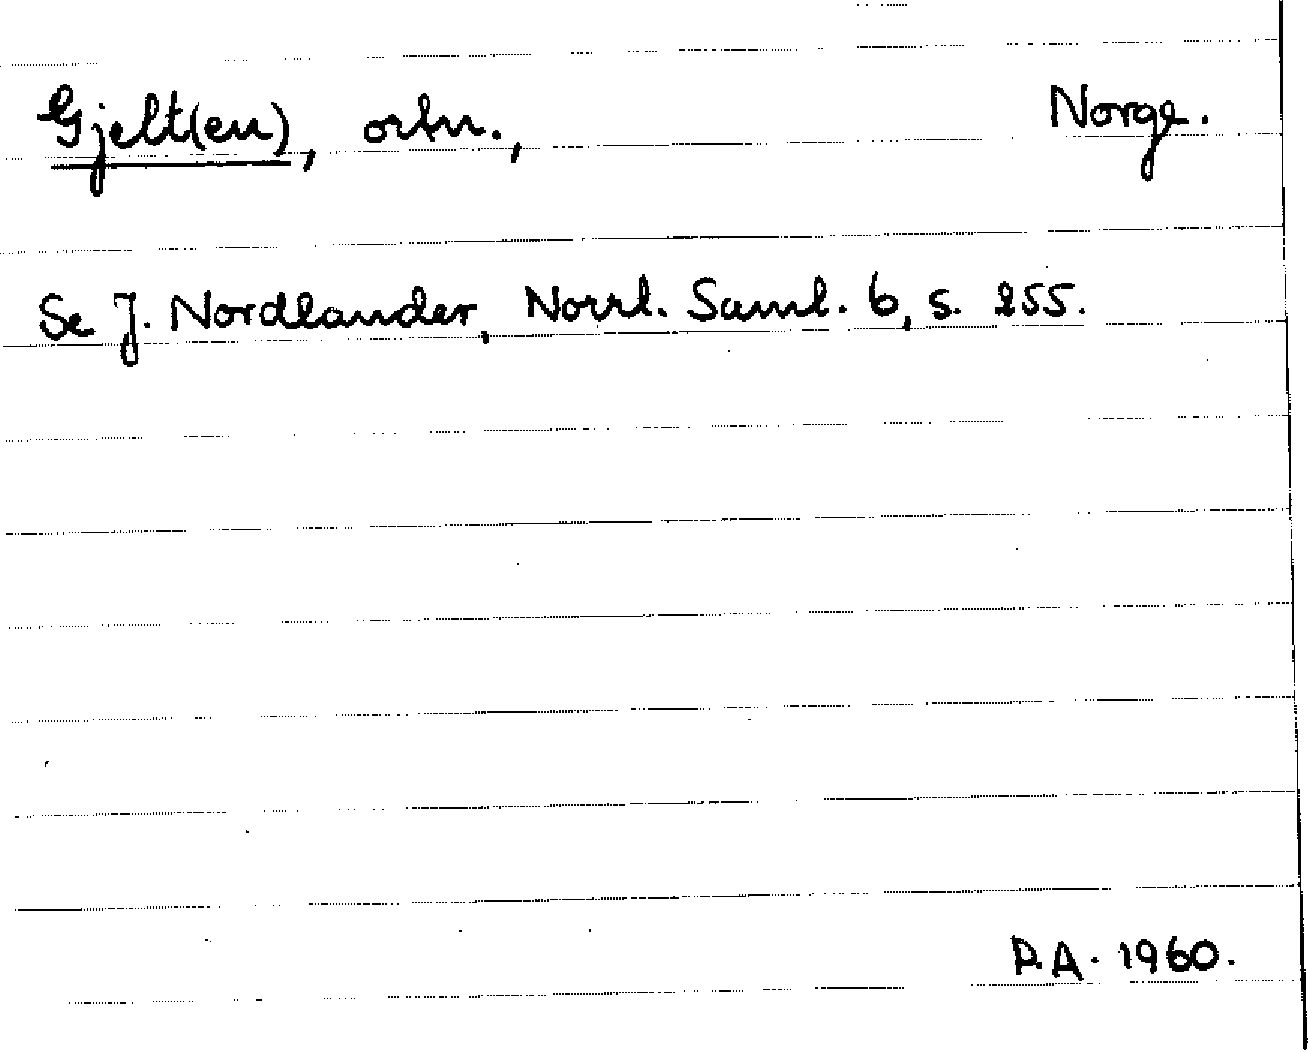 Gjelt(en), ortn., Norge.
Se J. Nordlander, Norrl. Saml. 6, s. 255.
P.A. 1960.